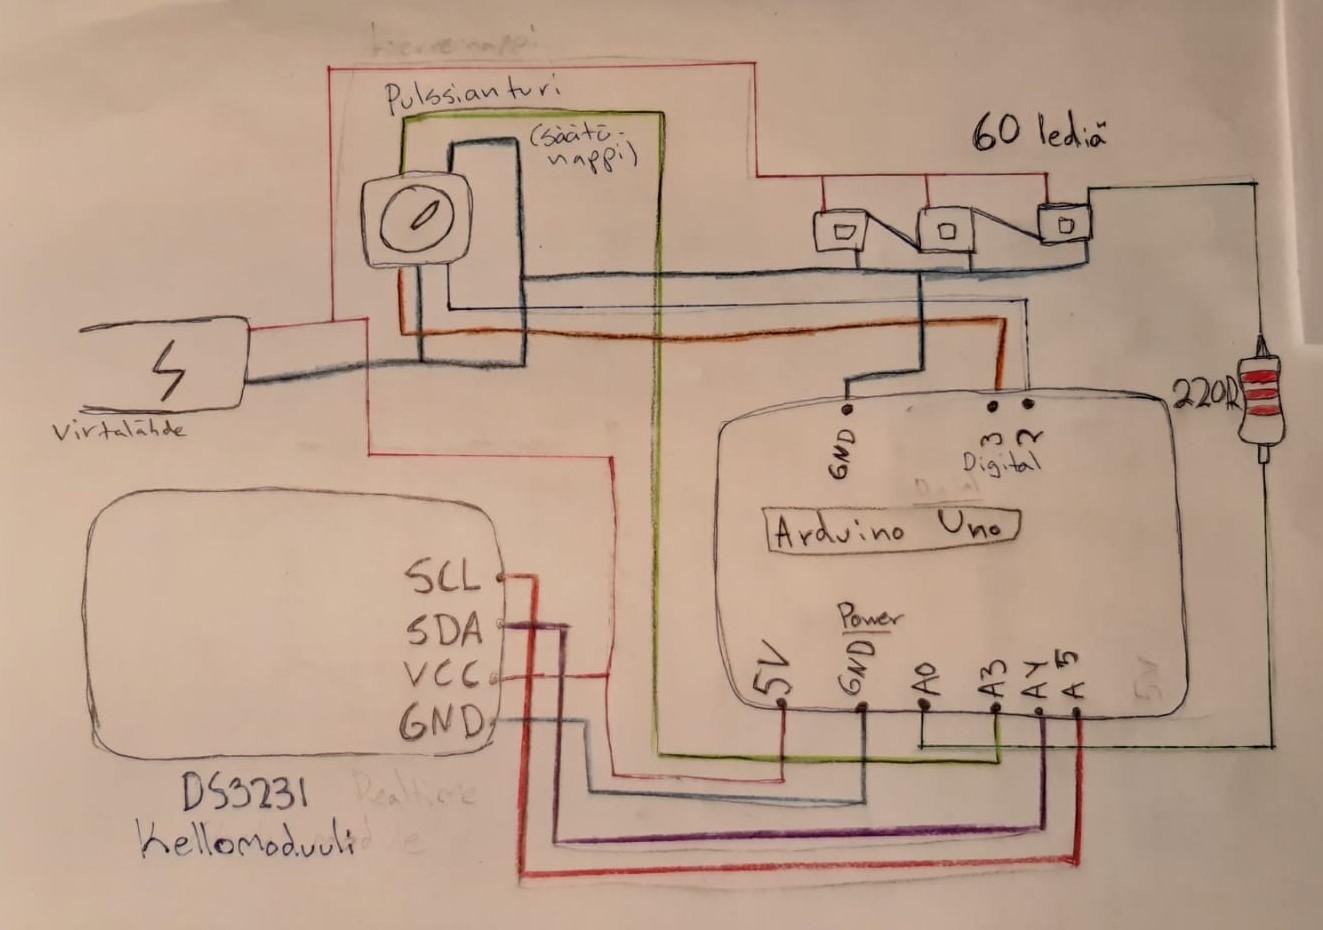 Pulssianturi
(säätö-
nappi)
60 lediä
Virtalähde
220R
GND
3
2
Digital
Arduino Uno
Power
5V
GND
A0
A3
A4
A5
5V
SCL
SDA
VCC
GND
DS3231
Kellomoduuli
Realtime